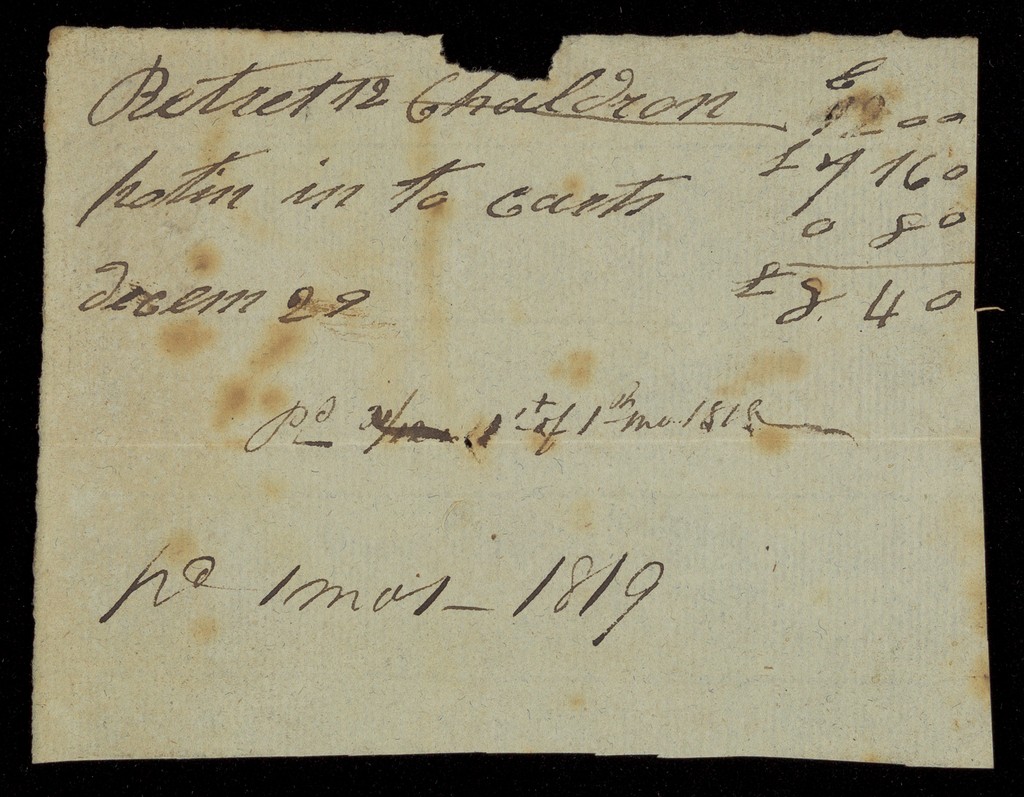 Retret 12 Chaldron £ 12 00
£ 7 16 0
potin in to Carts 0 8 0
decem 29 £ 8 4 0
Pd 1st of 1st mo. 1818
pd 1 mo 1 - 1819